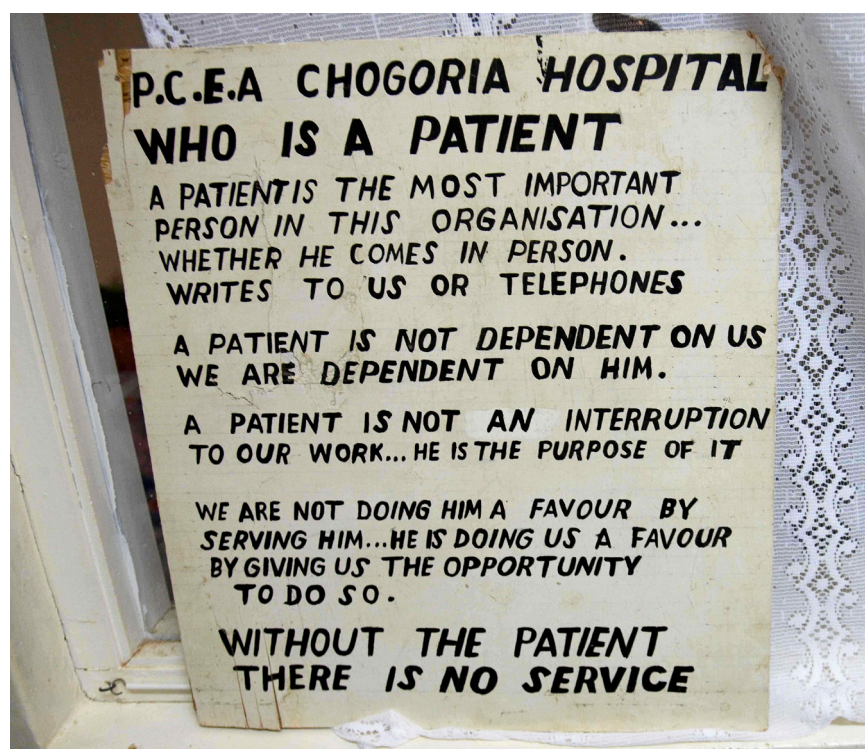 P.C.E.A CHOGORIA HOSPITAL
WHO IS A PATIENT
A PATIENT IS THE MOST IMPORTANT
PERSON IN THIS ORGANISATION...
WHETHER HE COMES IN PERSON.
WRITES TO US OR TELEPHONES
A PATIENT IS NOT DEPENDENT ON US
WE ARE DEPENDENT ON HIM.
A PATIENT IS NOT AN INTERRUPTION
TO OUR WORK... HE IS THE PURPOSE OF IT
WE ARE NOT DOING HIM A FAVOUR BY
SERVING HIM...HE IS DOING US A FAVOUR
BY GIVING US THE OPPORTUNITY
TO DO SO.
WITHOUT THE PATIENT
THERE IS NO SERVICE